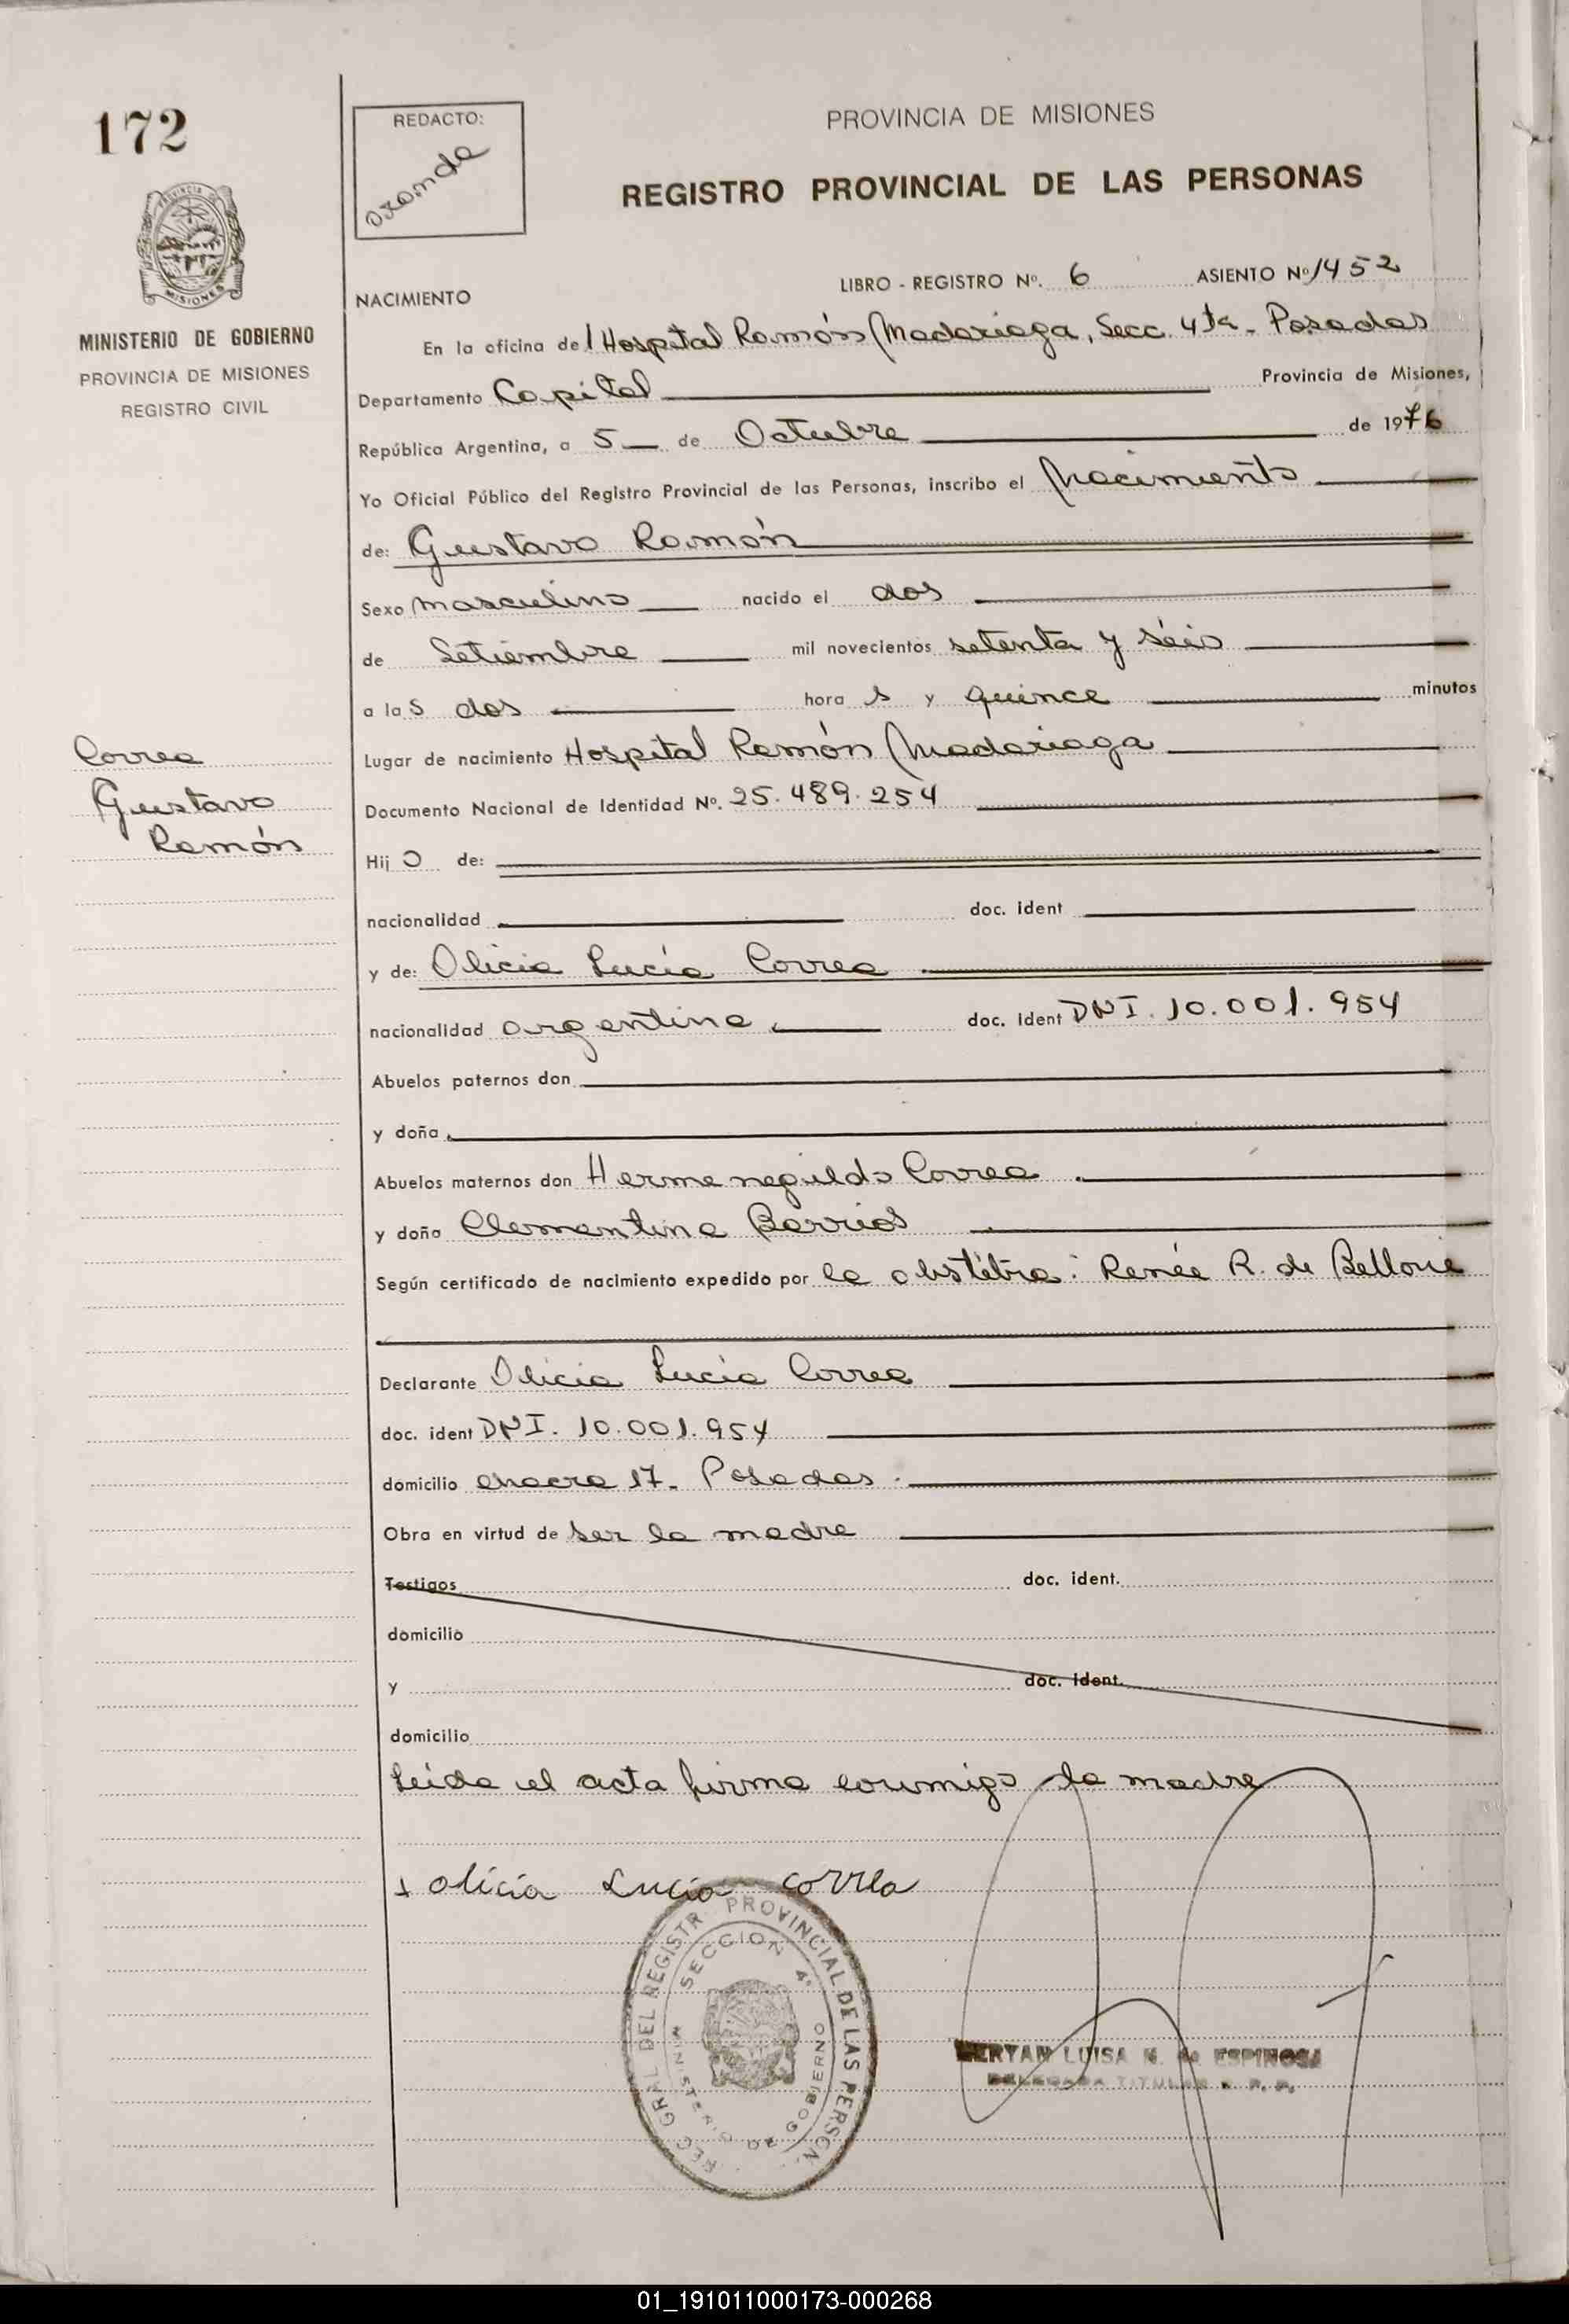 172
REDACTO:
PROVINCIA DE MISIONES
REGISTRO PROVINCIAL DE LAS PERSONAS
PROVINCIA
MISIONES
MINISTERIO DE GOBIERNO
PROVINCIA DE MISIONES
REGISTRO CIVIL
LIBRO - REGISTRO Nº. 6 ASIENTO Nº 1452
NACIMIENTO
En la oficina del Hospital Ramón Madariaga, Secc. 4ta - Posadas
Departamento Capital Provincia de Misiones,
República Argentina, a 5 de Octubre de 1976
Yo Oficial Público del Registro Provincial de las Personas, inscribo el Nacimiento
de: Gustavo Ramón
Sexo masculino nacido el dos
de Setiembre mil novecientos setenta y séis
a las dos hora s y quince minutos
Lugar de nacimiento Hospital Ramón Madariaga
Correa
Gustavo
Ramón
Documento Nacional de Identidad Nº. 25.489.254
Hijo de:
nacionalidad doc. ident
y de: Olicia Lucía Correa
nacionalidad argentina doc. Ident DNI. 10.001.954
Abuelos paternos don
y doña
Abuelos maternos don Hermenegildo Correa
y doña Clementina Barrios
Según certificado de nacimiento expedido por la obstétra: Renée R. de Bellone
Declarante Olicia Lucía Correa
doc. ident DNI. 10.001.954
domicilio chacra 17- Posadas.
Obra en virtud de ser la madre
Testigos doc. ident.
domicilio
y doc. ident.
domicilio
Leida el acta firma conmigo la madre
olicia Lucia correa
REG. GRAL DEL REGISTR. PROVINCIAL DE LAS PERSON.
SECCION 4ª
MINISTERIO DE GOBIERNO
LUISA N. de ESPINOSA
DELEGADA TITULAR R. P. P.
01_191011000173-000268